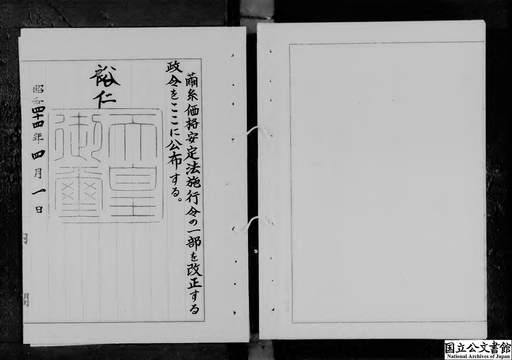 繭糸価格安定法施行令の一部を改正する
政令をここに公布する。
裕仁
天皇
御璽
昭和四十四年四月一日
国立公文書館
National Archives of Japan